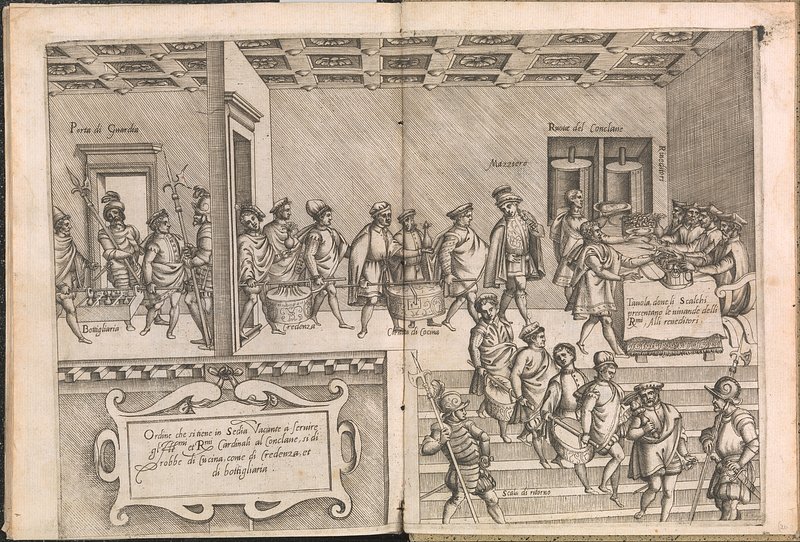 Porta di Guardia
Ruove del Conclave
Mazziero
Reueditori
Bottigliaria
Credenza
di Cocina
Tauola, doue li Scalchi
presentano le uiuande delli
R.mi Alli reueditori.
Ordine che si tiene in Sedia Vacante a seruire
gl' Ill.mi et R.mi Cardinali al Conclaue, si di
robbe di Cucina, come di Credenza, et
di bottigliaria.
Scala di ritorno